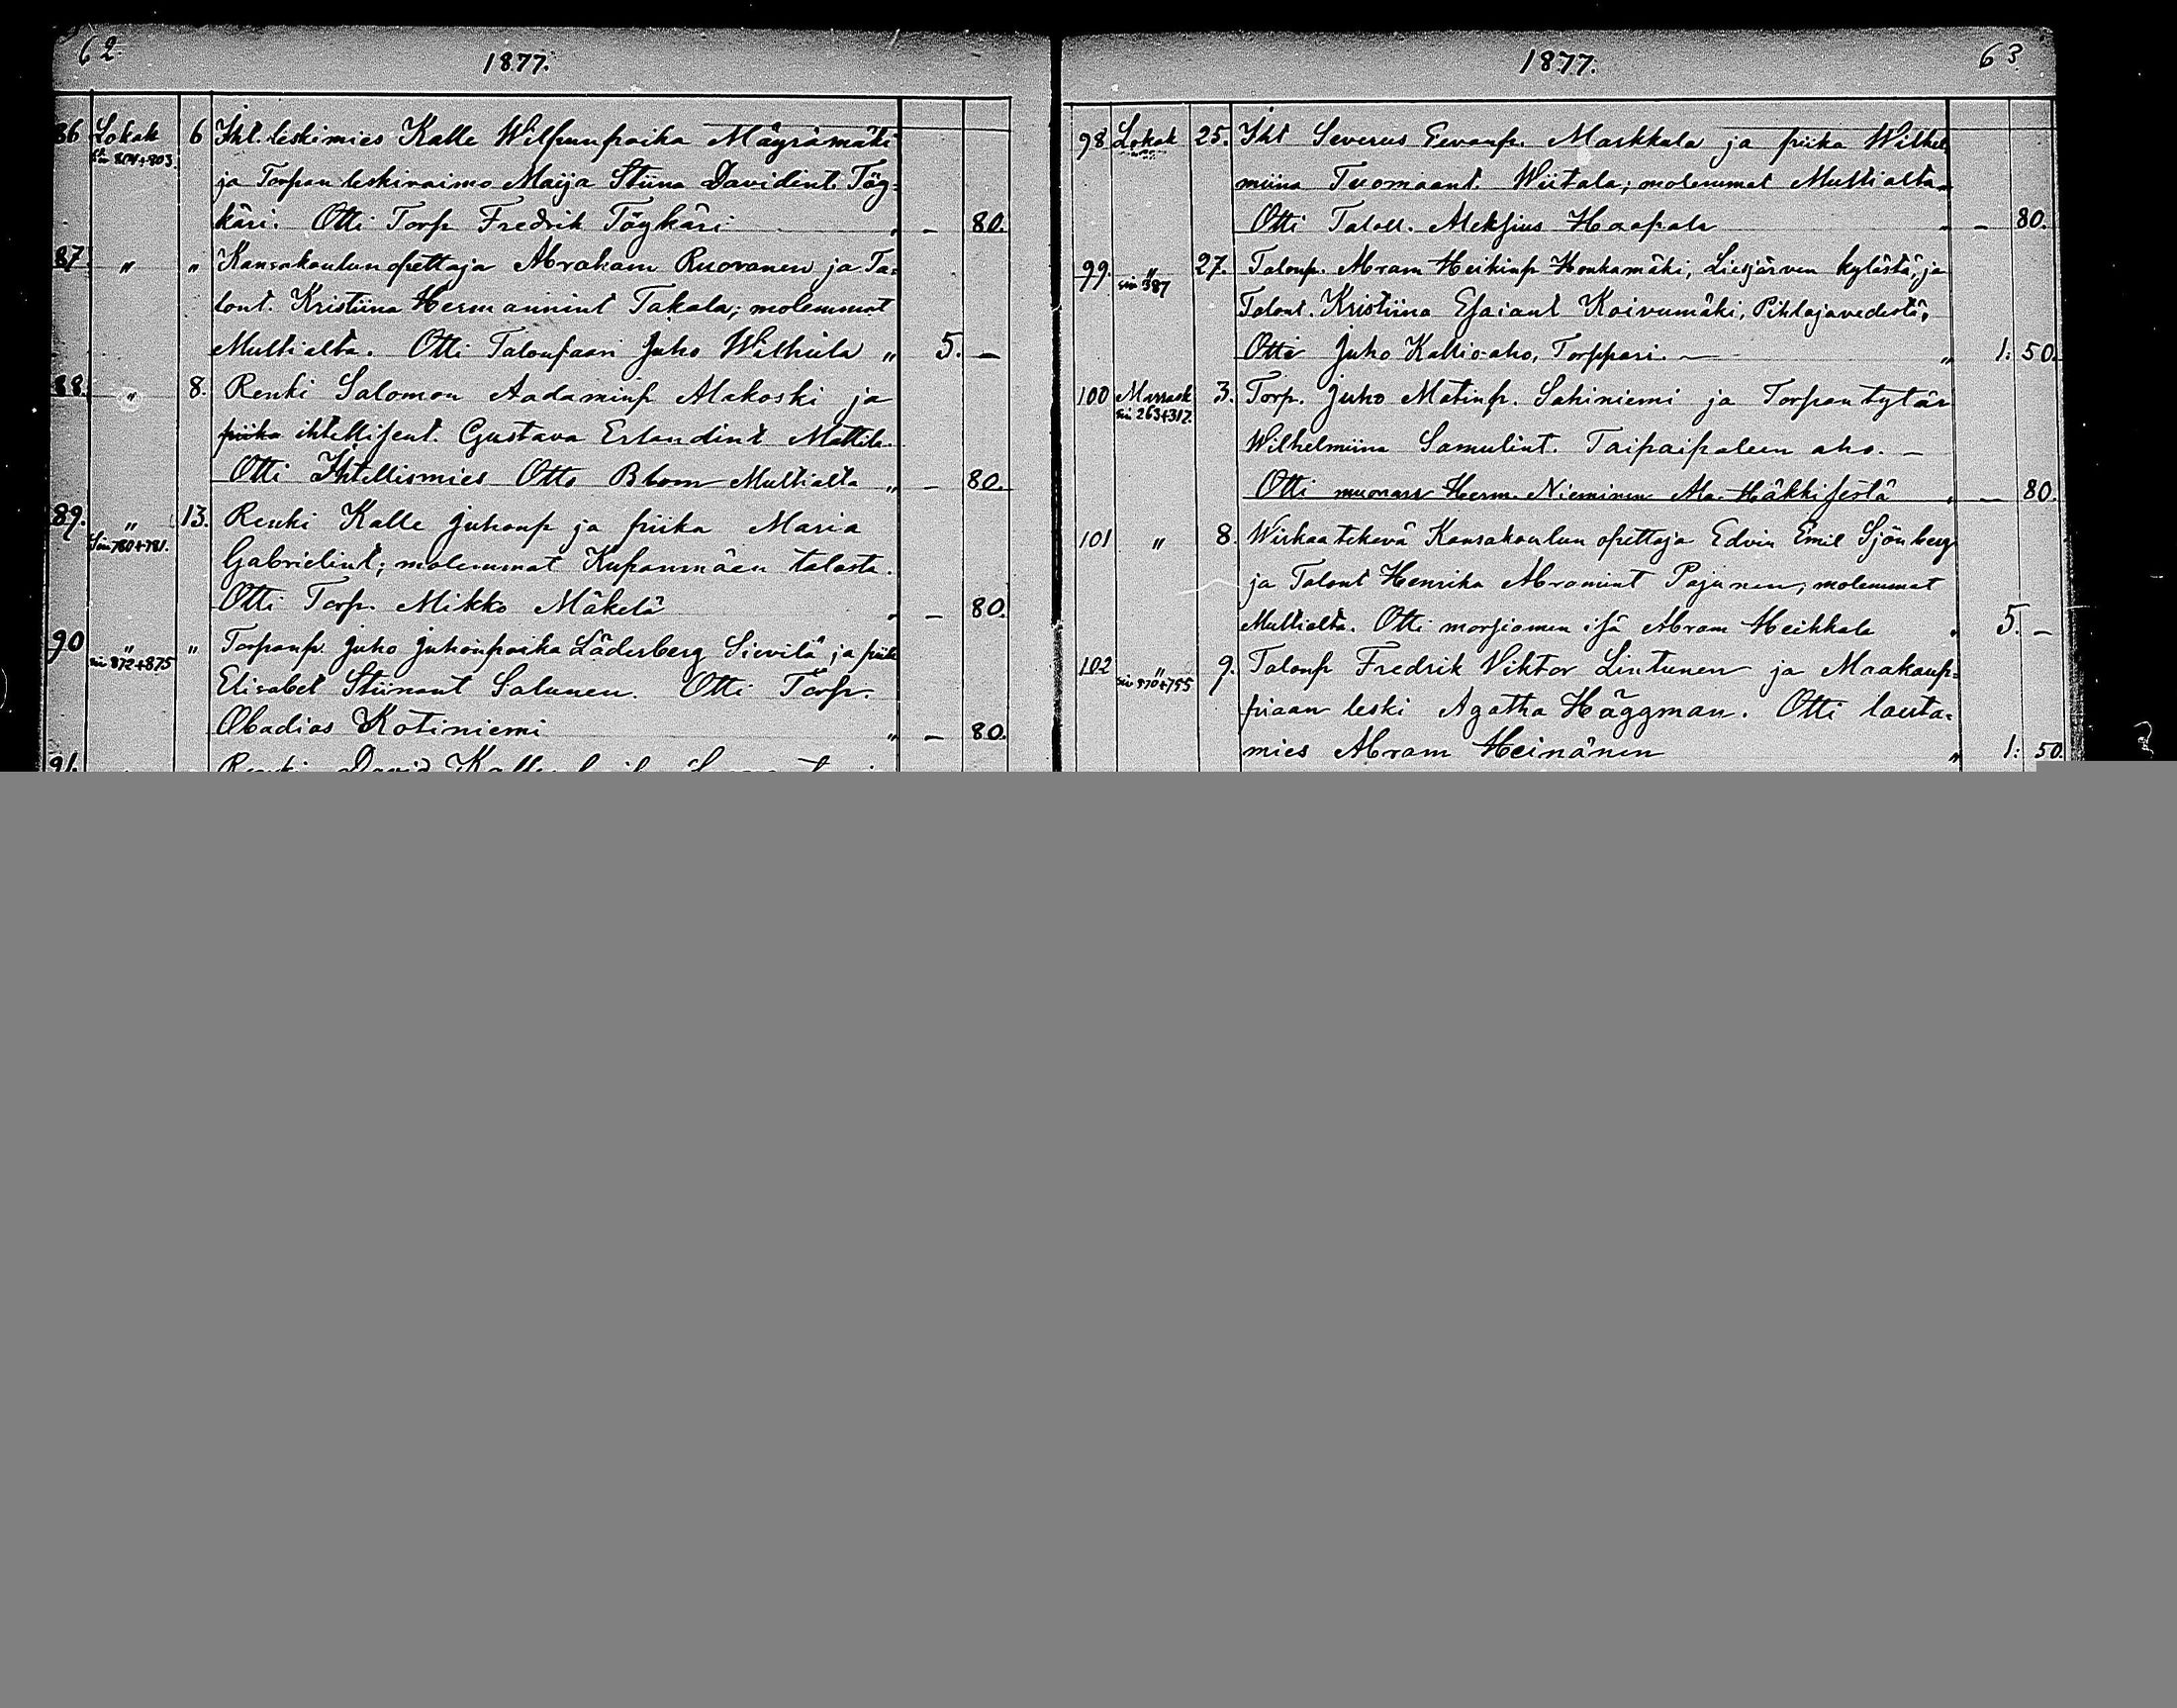 62.
1877.
86 Lokak 6 Iht. leskimies Kalle Wilpunpoika Mäyrämäki
siv 804+803. ja Torpan leskivaimo Maija Stiina Davidint. Töy-
käri. Otti Torp Fredrik Töykäri „ — 80.
87. „ „ Kansakoulun opettaja Abraham Ruoranen ja Ta-
lont. Kristiina Hermannint Takala; molemmat
Multialta. Otti Talonpaari Juho Wilhula „ 5. —
88. „ 8. Renki Salomon Aadaminp Alakoski ja
piika ihtellisent. Gustava Erlandint Mattila.
Otti Ihtellismies Otto Blom Multialta „ — 80.
89. „ 13. Renki Kalle Juhonp ja piika Maria
siv 780+781. Gabrielint; molemmat Kupanmäen talosta.
Otti Torp. Mikko Mäkelä „ — 80.
90 „ „ Torpanp. Juho Juhonpoika Läderberg Sievilä ja piik
siv 872+875 Elisabet Stiinant Salunen. Otti Torp.
Obadias Kotiniemi „ — 80.
91. Renki David
63.
1877.
98 Lokak 25. Iht Severus Eevanp. Markkula ja piika Wilhel
miina Tuomaant. Wiitala; molemmat Multialta
Otti Taloll. Aleksius Haapala „ — 80.
99. „ 27. Talonp. Abram Heikinp Honkamäki, Liesjärven kylästä, ja
siv 387 Talont. Kristiina Esaiant Koivumäki, Pihlajavedestä,
Otti Juho Kallio-aho, Torppari. — „ 1. 50.
100 Marrask 3. Torp. Juho Matinp. Sahiniemi ja Torpan tytär
siv 263+312. Wilhelmiina Samulint. Taipaipaleen aho. —
Otti muonar Herm. Nieminen Ala-Häkkisestä „ — 80.
101 „ 8. Wirkaatekevä Kansakoulun opettaja Edvin Emil Sjönberg
ja Talont Henrika Abramint Pajunen, molemmat
Multialta. Otti morsiamen isä Abram Heikkala „ 5. —
102 „ 9. Talonp Fredrik Viktor Lintunen ja Maakaup-
siv 970+755 piaan leski Agatha Häggman. Otti lauta-
mies Abram Heinänen „ 1: 50.